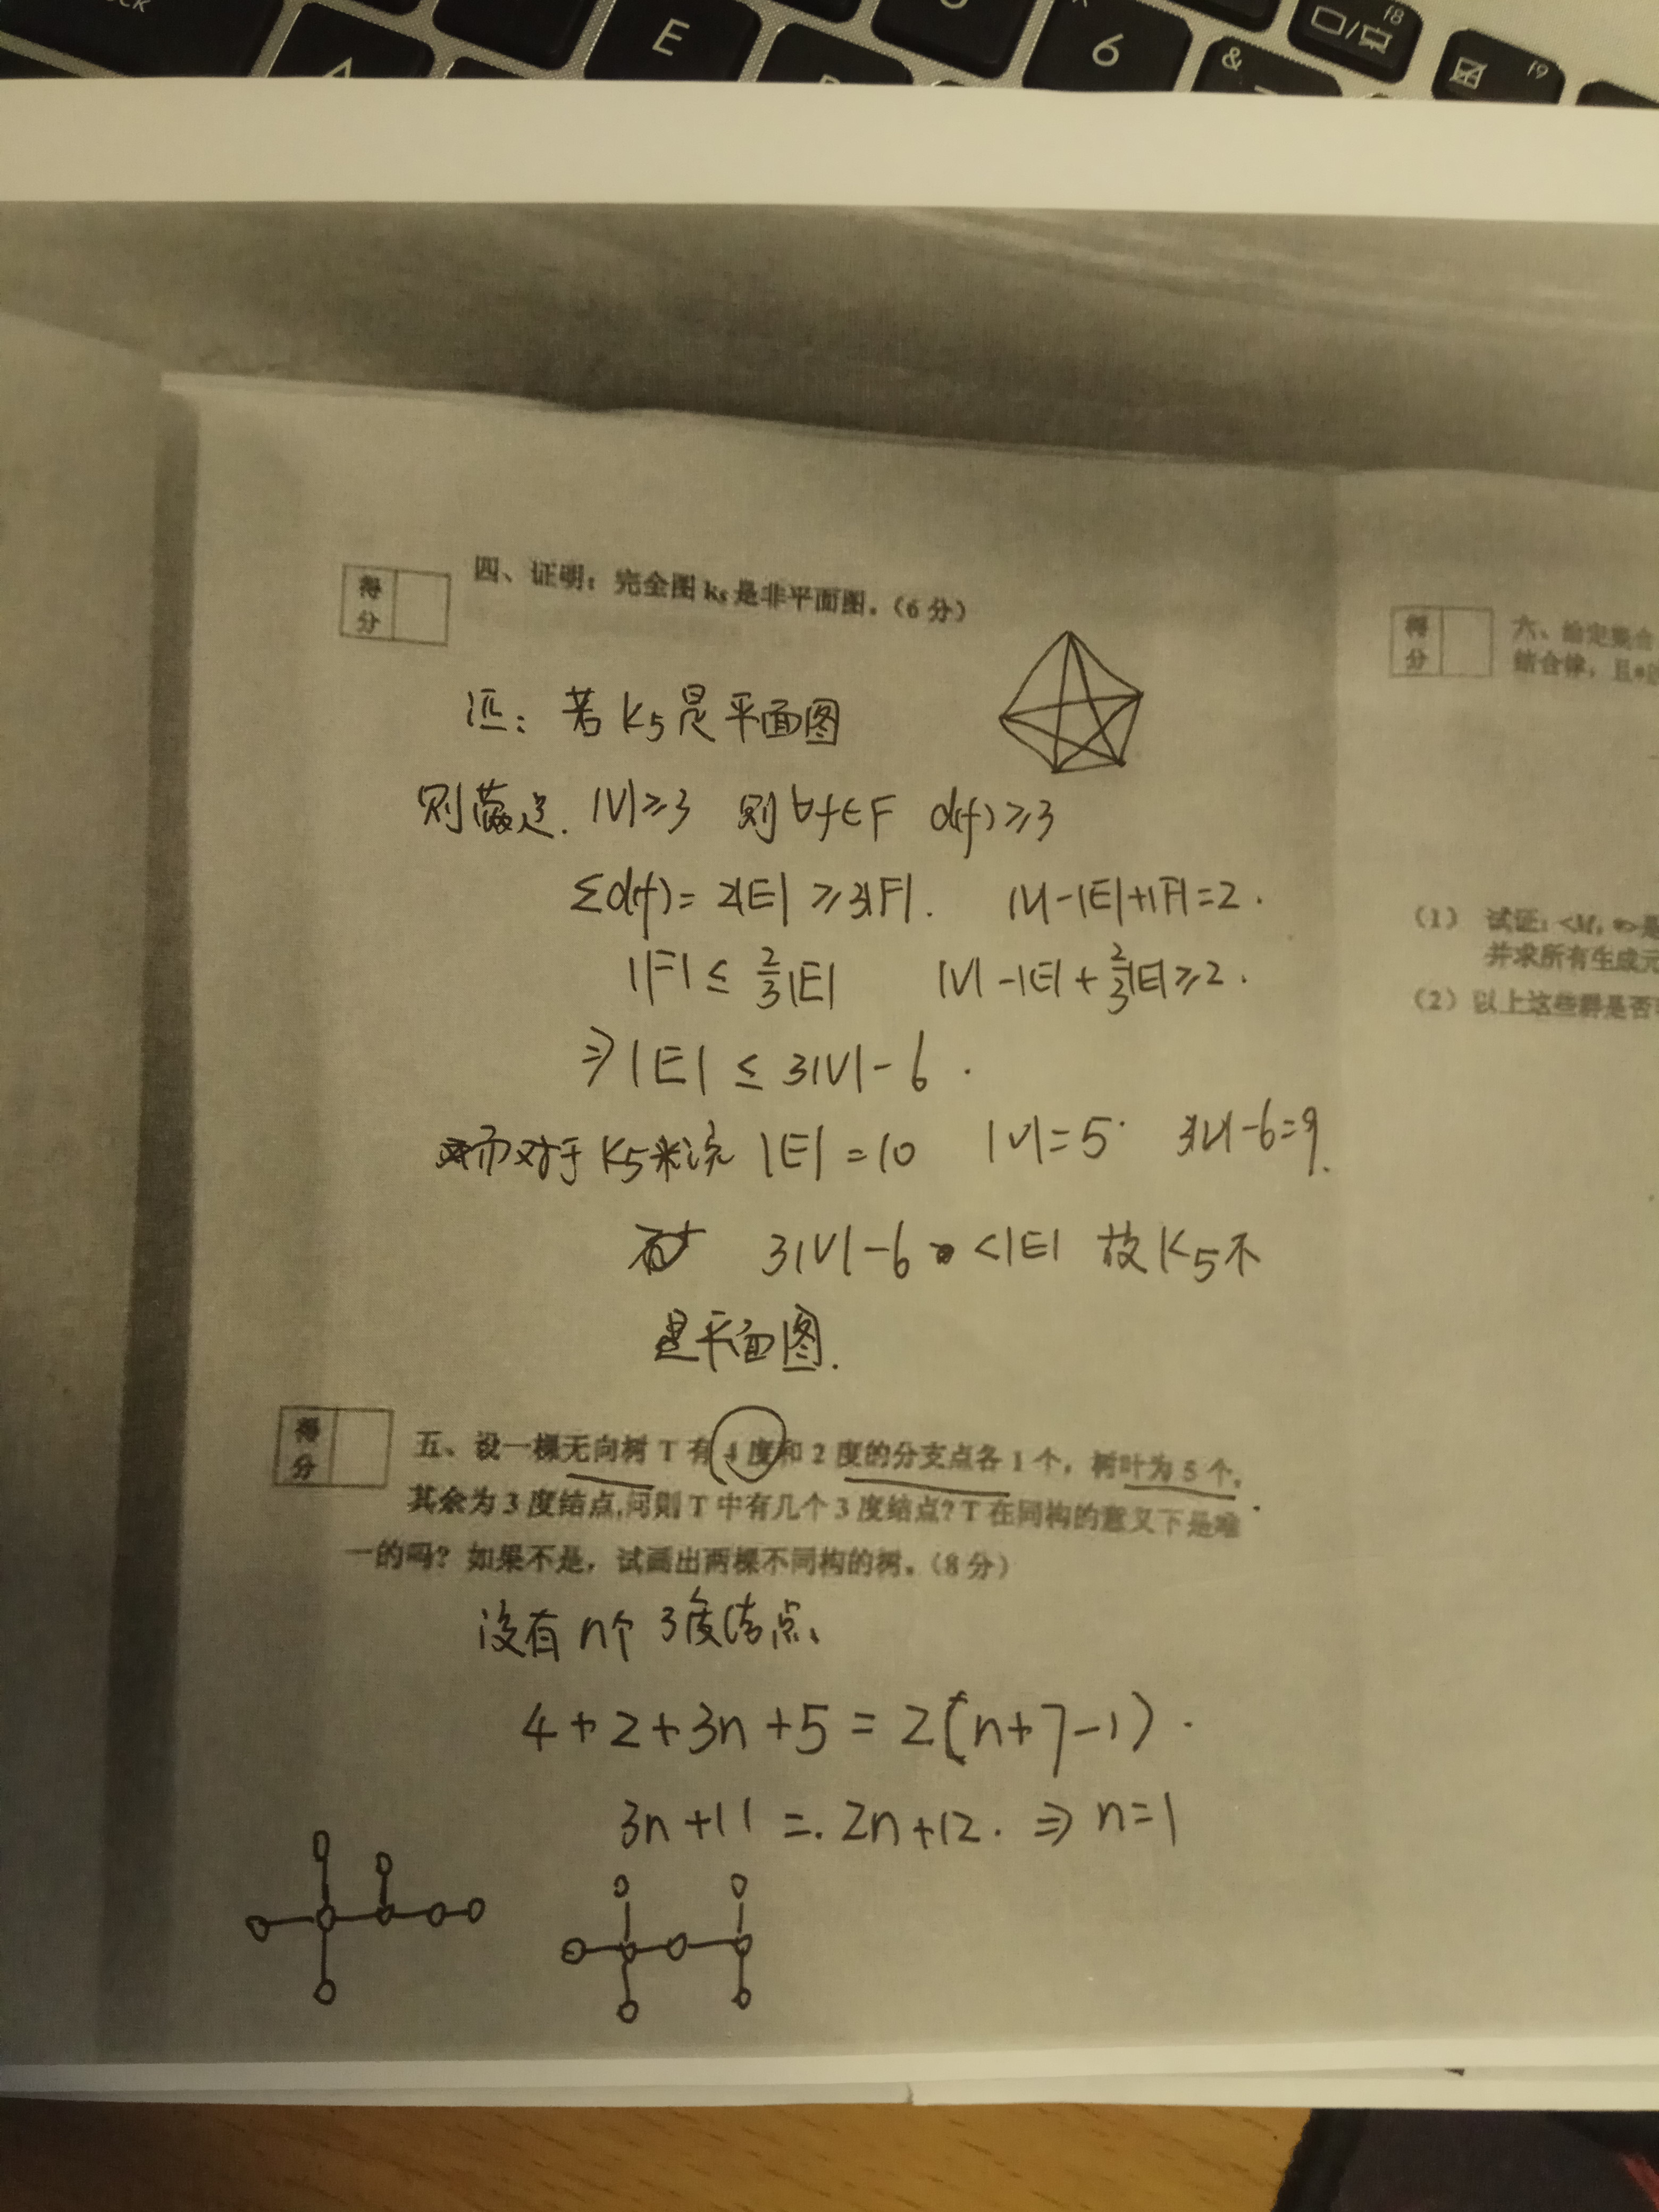 E
6
&
f8
f9
得分
四、证明：完全图 k₅是非平面图。（6 分）
证：若 K₅是平面图
则 |V|≥3 则∀f∈F d(f)≥3
Σd(f)= 2|E| ≥3|F|. |V|-|E|+|F|=2.
|F| ≤ 2/3|E| |V|-|E|+2/3|E|≥2.
⇒|E| ≤ 3|V|-6.
而对于 K₅来说 |E|=10 |V|=5 3|V|-6=9.
3|V|-6 <|E| 故 K₅不
是平面图.
得分
五、设一棵无向树 T 有 4 度和 2 度的分支点各 1 个，树叶为 5 个，
其余为 3 度结点,问则 T 中有几个 3 度结点? T 在同构的意义下是唯
一的吗？如果不是，试画出两棵不同构的树。（8 分）
设有 n个 3度结点、
4+2+3n+5=2(n+7-1).
3n+11=.2n+12. ⇒ n=1
得分
六、给定集合
结合律，且
（1） 试证：<M, *>是
并求所有生成元
（2）以上这些群是否